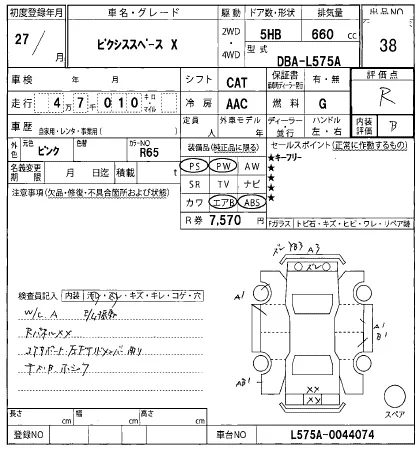 初度登録年月 車名・グレード 駆動 ドア数・形状 排気量 出品NO
27/月 ピクシススペース X 2WD・4WD 5HB 660 cc 38
型式 DBA-L575A
車検 年 月 シフト CAT 保証書 有・無 評価点
走行 4万7千010 キロ・マイル 冷房 AAC 燃料 G R
車歴 自家用・レンタ・事業用( ) 定員 人 外車モデル 年 ディーラー・並行 ハンドル 左・右 内装評価 B
外色 元色 ピンク 色替 カラーNO R65 装備品(純正品に限る) セールスポイント(正常に作動するもの)
名義変更期限 月 日迄 積載 t PS PW AW ★キーフリー
注意事項(欠品・修復・不具合箇所および状態) SR TV ナビ ★
カワ エアB ABS ★
R券 7,570円 ★
Fガラス トビ石・キズ・ヒビ・ワレ・リペア跡
ズレ YB3 A3
ズレ
検査員記入 内装 汚れ・コレ・キズ・キレ・コゲ・穴
A1 A1 B1
W/C.A
RパネルXX
AB1 XX
XX
スペア
長さ cm 幅 cm 高さ cm
登録NO 車台NO L575A-0044074